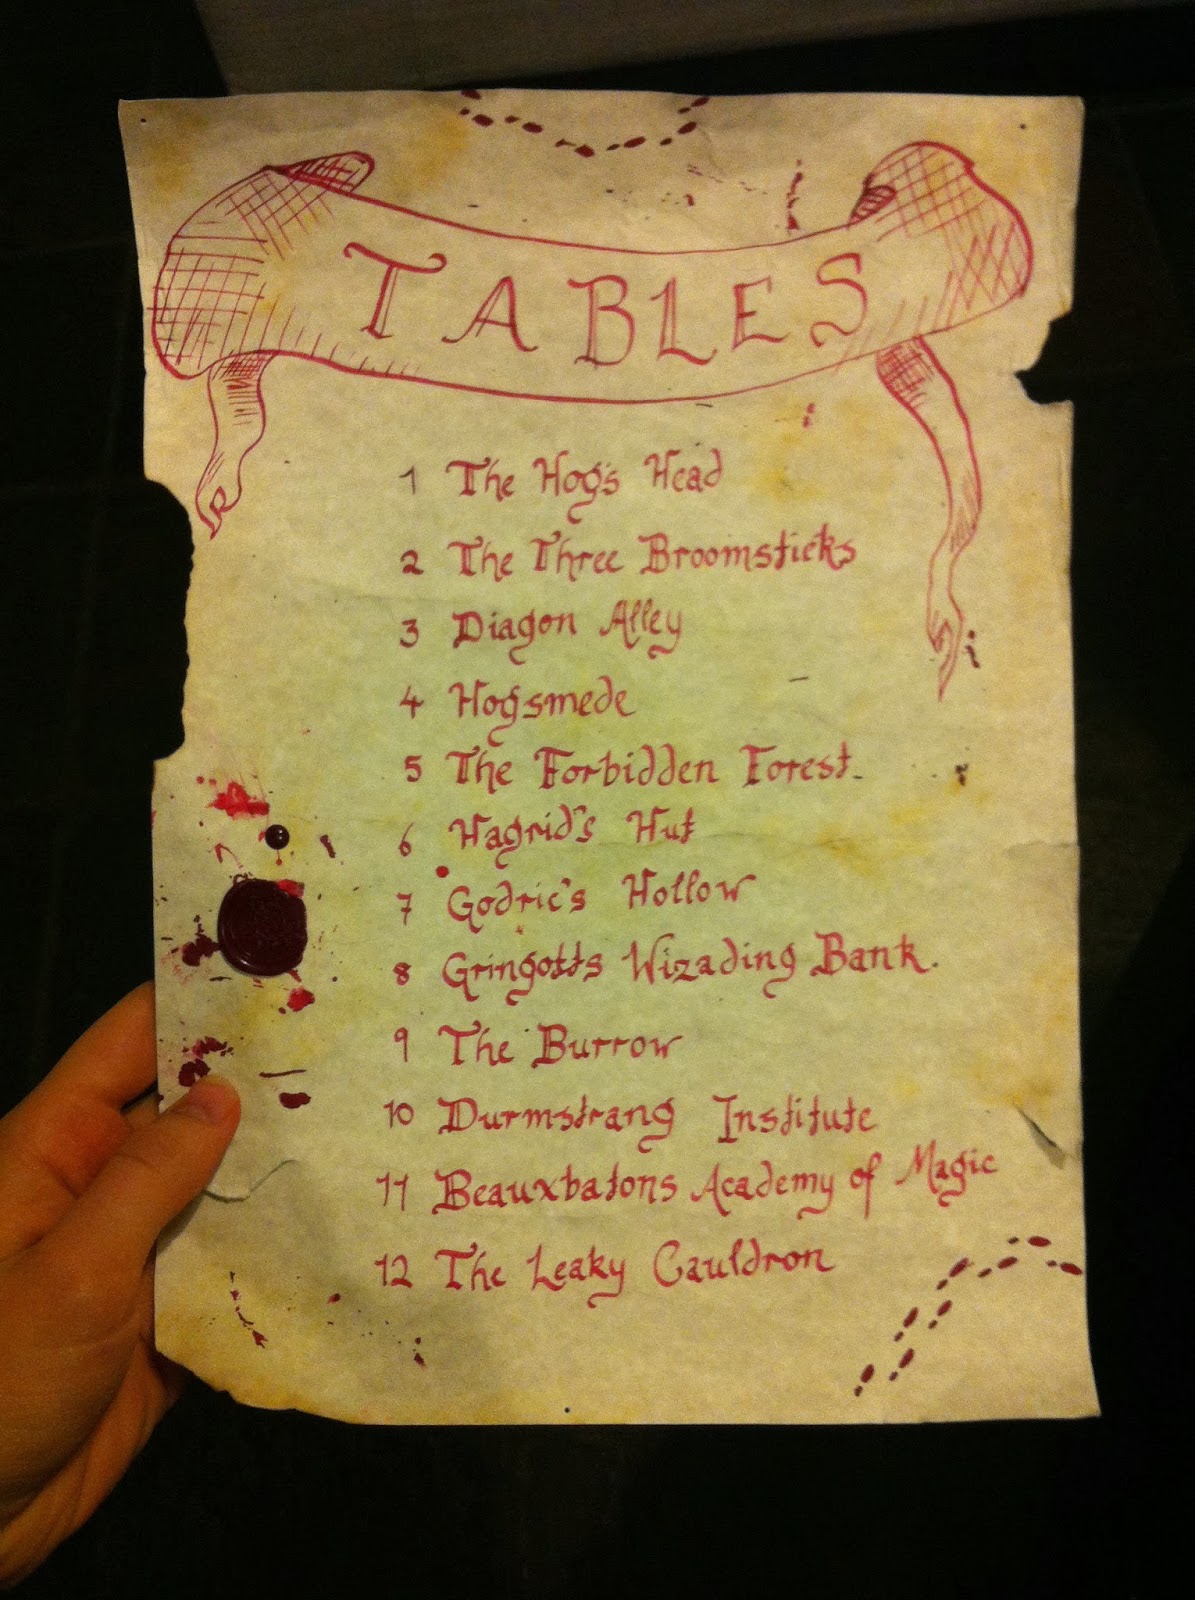 TABLES
1 The Hog's Head
2 The Three Broomsticks
3 Diagon Alley
4 Hogsmede
5 The Forbidden Forest.
6 Hagrid's Hut
7 Godric's Hollow
8 Gringotts Wizading Bank.
9 The Burrow
10 Durmstrang Institute
11 Beauxbatons Academy of Magic
12 The Leaky Cauldron